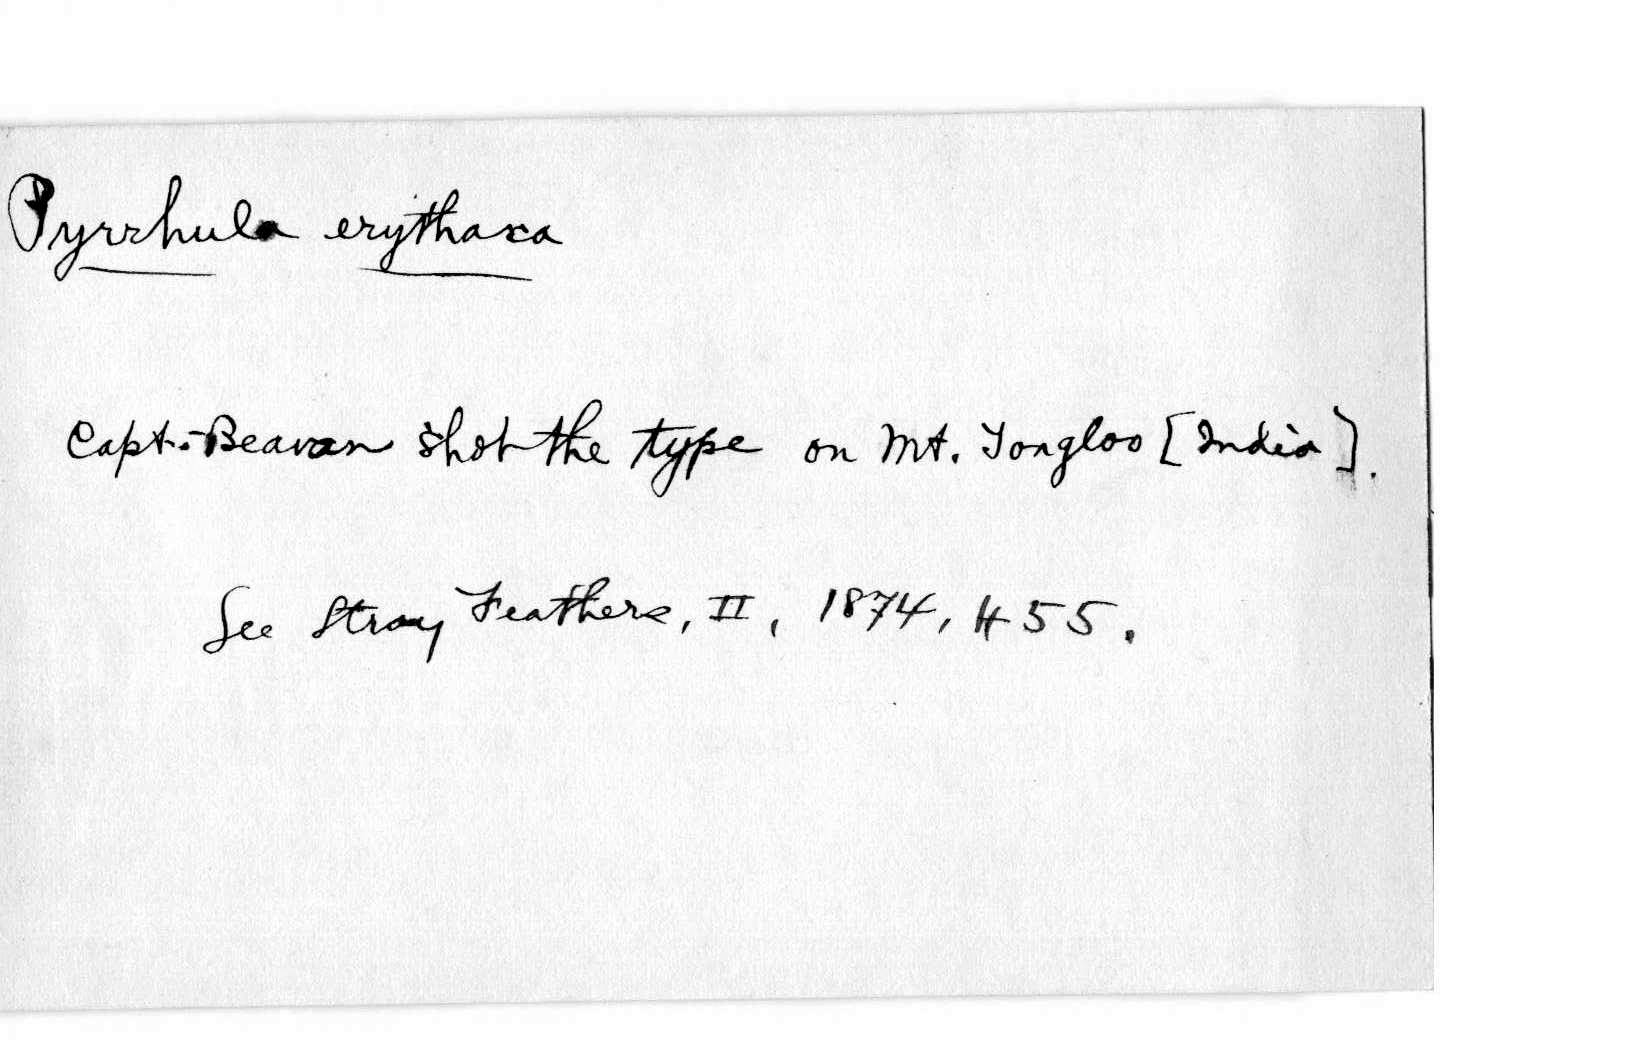 Pyrrhula erythaca
Capt. Beavan shot the type on Mt. Tongloo [India].
See Stray Feathers, II, 1874, 455.